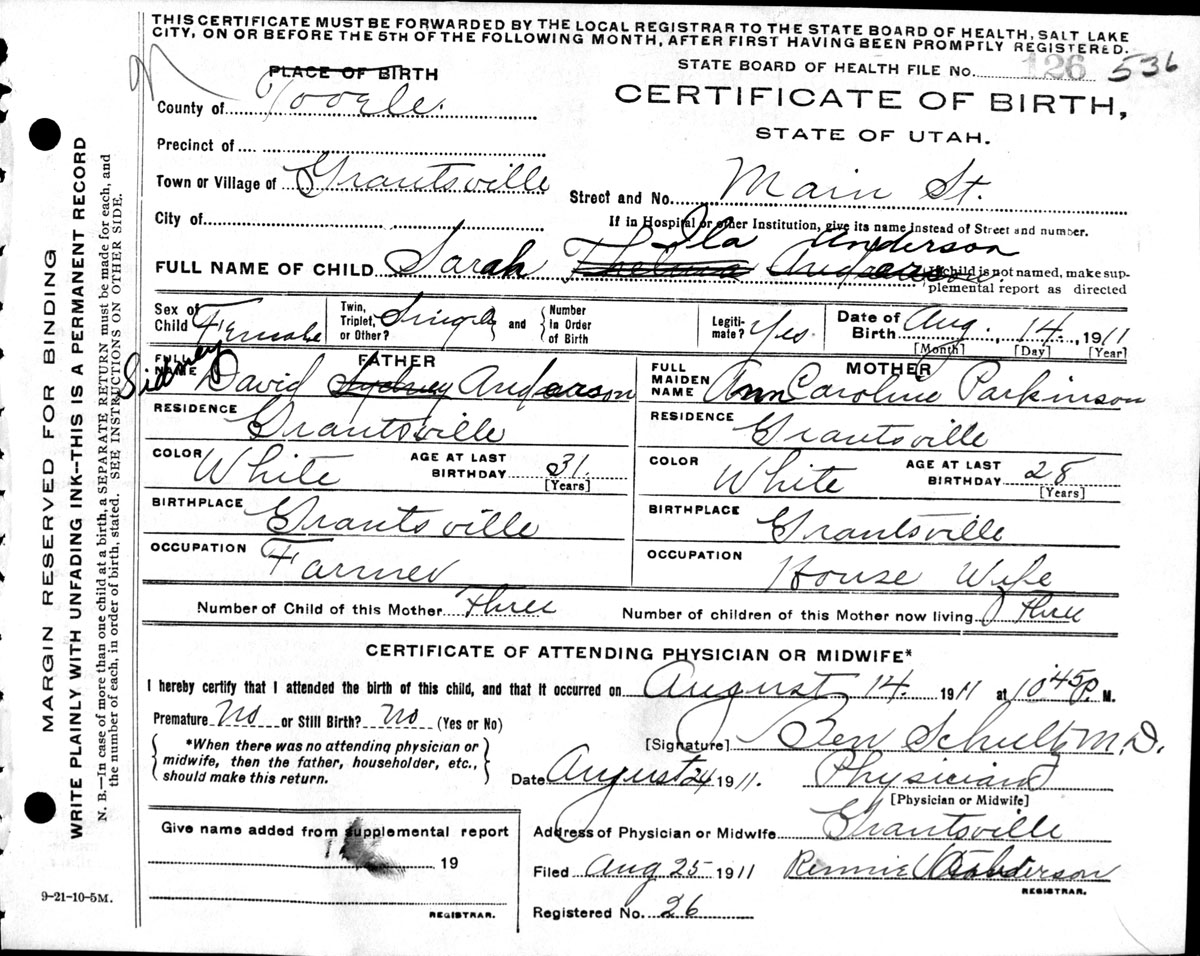 THIS CERTIFICATE MUST BE FORWARDED BY THE LOCAL REGISTRAR TO THE STATE BOARD OF HEALTH, SALT LAKE
CITY, ON OR BEFORE THE 5TH OF THE FOLLOWING MONTH, AFTER FIRST HAVING BEEN PROMPTLY REGISTERED.
PLACE OF BIRTH
STATE BOARD OF HEALTH FILE No. 126 536
County of Tooele.
CERTIFICATE OF BIRTH,
STATE OF UTAH.
Precinct of
Town or Village of Grantsville
Street and No. Main St.
City of
If in Hospital or other Institution, give its name instead of Street and number.
Ila Anderson
FULL NAME OF CHILD Sarah Thelma Anderson
If child is not named, make sup-
plemental report as directed
Sex of Child Female
Twin, Triplet, or Other? Single and { Number In Order of Birth
Legiti- mate? Yes.
Date of Birth Aug. 14, 1911
[Month] [Day] [Year]
FATHER
FULL NAME David Sydney Anderson
Sidney
MOTHER
FULL MAIDEN NAME Ann Caroline Parkinson
RESIDENCE Grantsville
RESIDENCE Grantsville
COLOR White AGE AT LAST BIRTHDAY 31. [Years]
COLOR White AGE AT LAST BIRTHDAY 28 [Years]
BIRTHPLACE Grantsville
BIRTHPLACE Grantsville
OCCUPATION Farmer
OCCUPATION House Wife
Number of Child of this Mother Three
Number of children of this Mother now living Three
CERTIFICATE OF ATTENDING PHYSICIAN OR MIDWIFE*
I hereby certify that I attended the birth of this child, and that it occurred on August 14. 1911 at 10 45 P. M.
Premature No or Still Birth? No (Yes or No)
{ *When there was no attending physician or
midwife, then the father, householder, etc.,
should make this return. }
[Signature] Ben Schultz M.D.
Date August 24 1911. Physician
[Physician or Midwife]
Give name added from supplemental report
19
REGISTRAR.
Address of Physician or Midwife Grantsville
Filed Aug 25 1911 Anderson
REGISTRAR.
Registered No. 26
9-21-10-5M.
MARGIN RESERVED FOR BINDING
WRITE PLAINLY WITH UNFADING INK--THIS IS A PERMANENT RECORD
N. B.—In case of more than one child at a birth, a SEPARATE RETURN must be made for each, and
the number of each, in order of birth, stated. SEE INSTRUCTIONS ON OTHER SIDE.